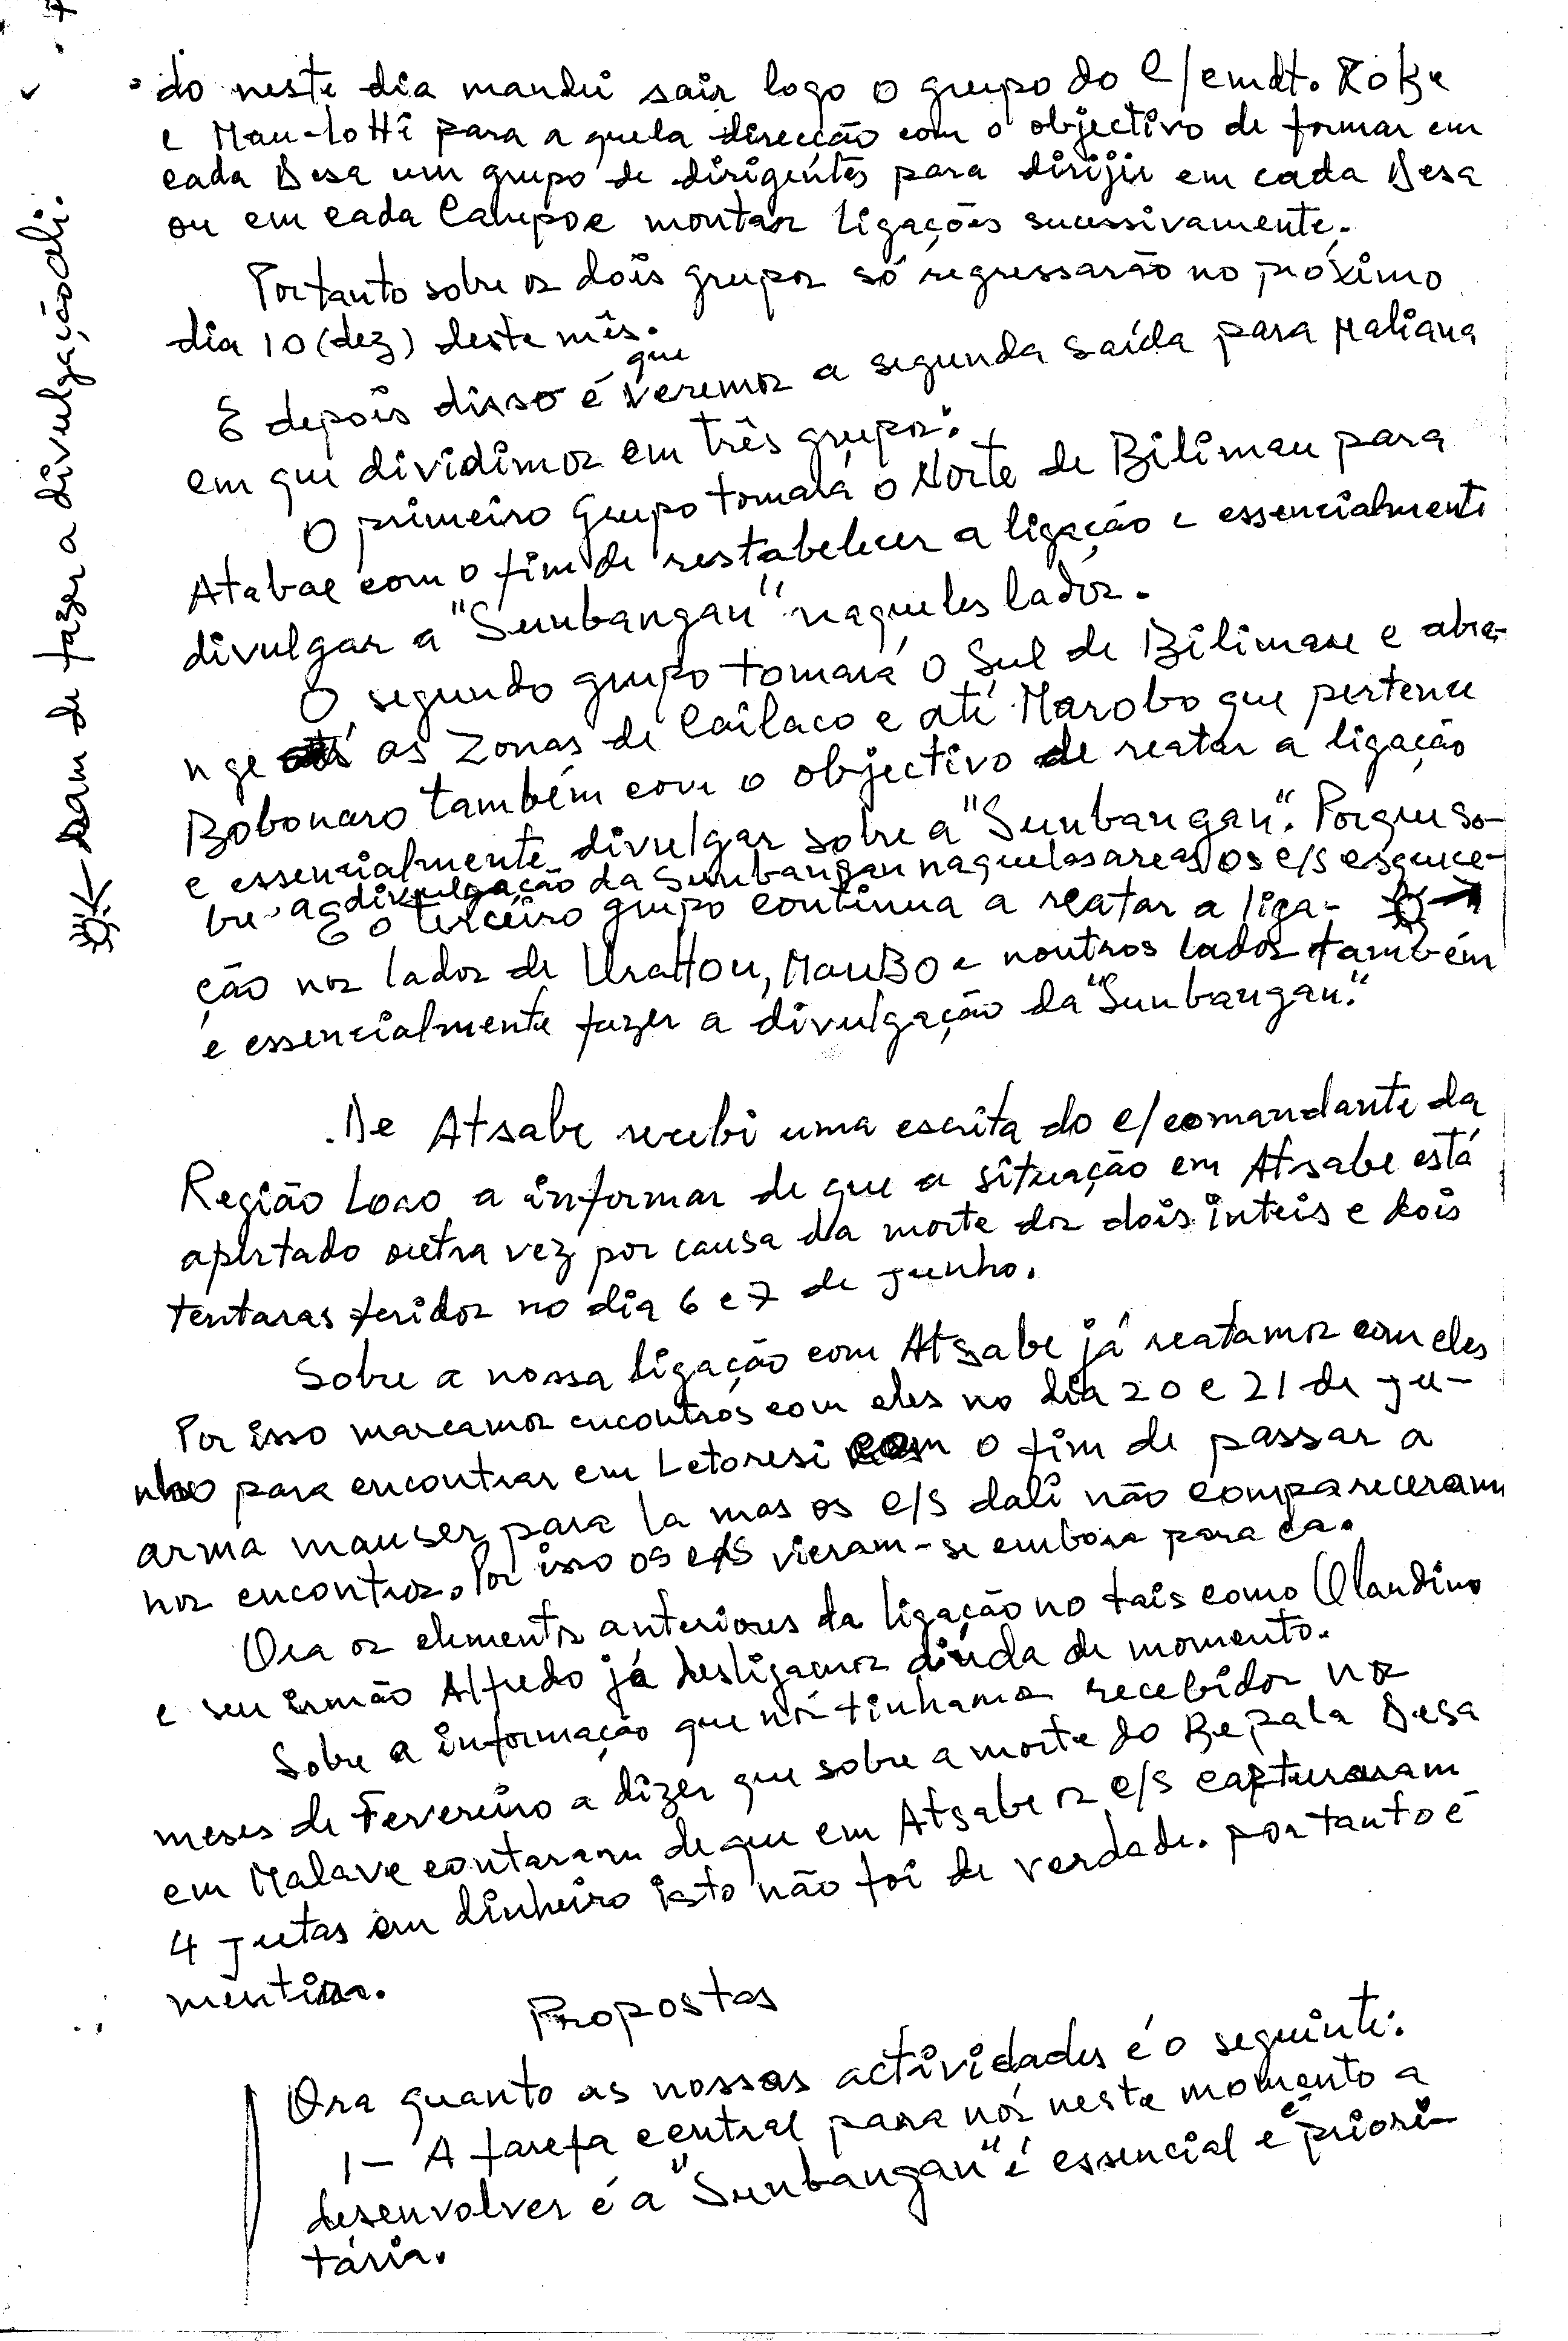 do neste dia mandei sair logo o grupo do C/cmdt. Koke
e Mau-Lotti para a quela direcção com o objectivo de formar em
cada Desa um grupo de dirigentes para dirijir em cada Desa
ou em cada Campo e montar ligações sucessivamente.
Portanto sobre os dois grupos só regressarão no próximo
dia 10 (dez) deste mês.
E depois disso é que veremos a segunda saída para Maliana
em que dividimos em três grupos:
O primeiro grupo tomará o Norte de Bilimau para
Atabae com o fim de restabelecer a ligação e essencialmente
divulgar a "Sunbangan" naqueles lados.
O segundo grupo tomará o Sul de Bilimau e abra-
nge as zonas de Cailaco e até Marobo que pertence
Bobonaro também com o objectivo de reatar a ligação
e essencialmente divulgar sobre a "Sunbangan". Porque so-
bre a divulgação da Sunbangan naquelas areas os c/s esquece-
ram de fazer a divulgação dli.
E o terceiro grupo continua a reatar a liga-
ção nos lados de Urattou, MauBo e noutros lados também
e essencialmente fazer a divulgação da "Sunbangan."
De Atsabe recebi uma escrita do c/comandante da
Região Loco a informar de que a situação em Atsabe está
apertado outra vez por causa da morte dos dois inteis e dois
tentaras feridos no dia 6 e 7 de junho.
Sobre a nossa ligação com Atsabe já reatamos com eles
Por isso marcamos encontros com eles no dia 20 e 21 de ju-
nho para encontrar em Letoresi com o fim de passar a
arma mauser para la mas os c/s dali não compareceram
nos encontros. Por isso os c/s vieram-se embora para cá.
Ora os elementos anteriores da ligação no tais como Olandino
e seu irmão Alfredo já desligamos dinda de momento.
Sobre a informação que nós tinhamos recebidos nos
meses de Fevereiro a dizer que sobre a morte do Bepala Desa
em Malave contaram de que em Atsabe os c/s capturaram
4 jutas em dinheiro isto não foi de verdade. portanto é
mentira.
Propostas
Ora quanto as nossas actividades é o seguinte:
1- A tarefa central para nós neste momento a
desenvolver é a "Sunbangan" é essencial e é priori-
tária.